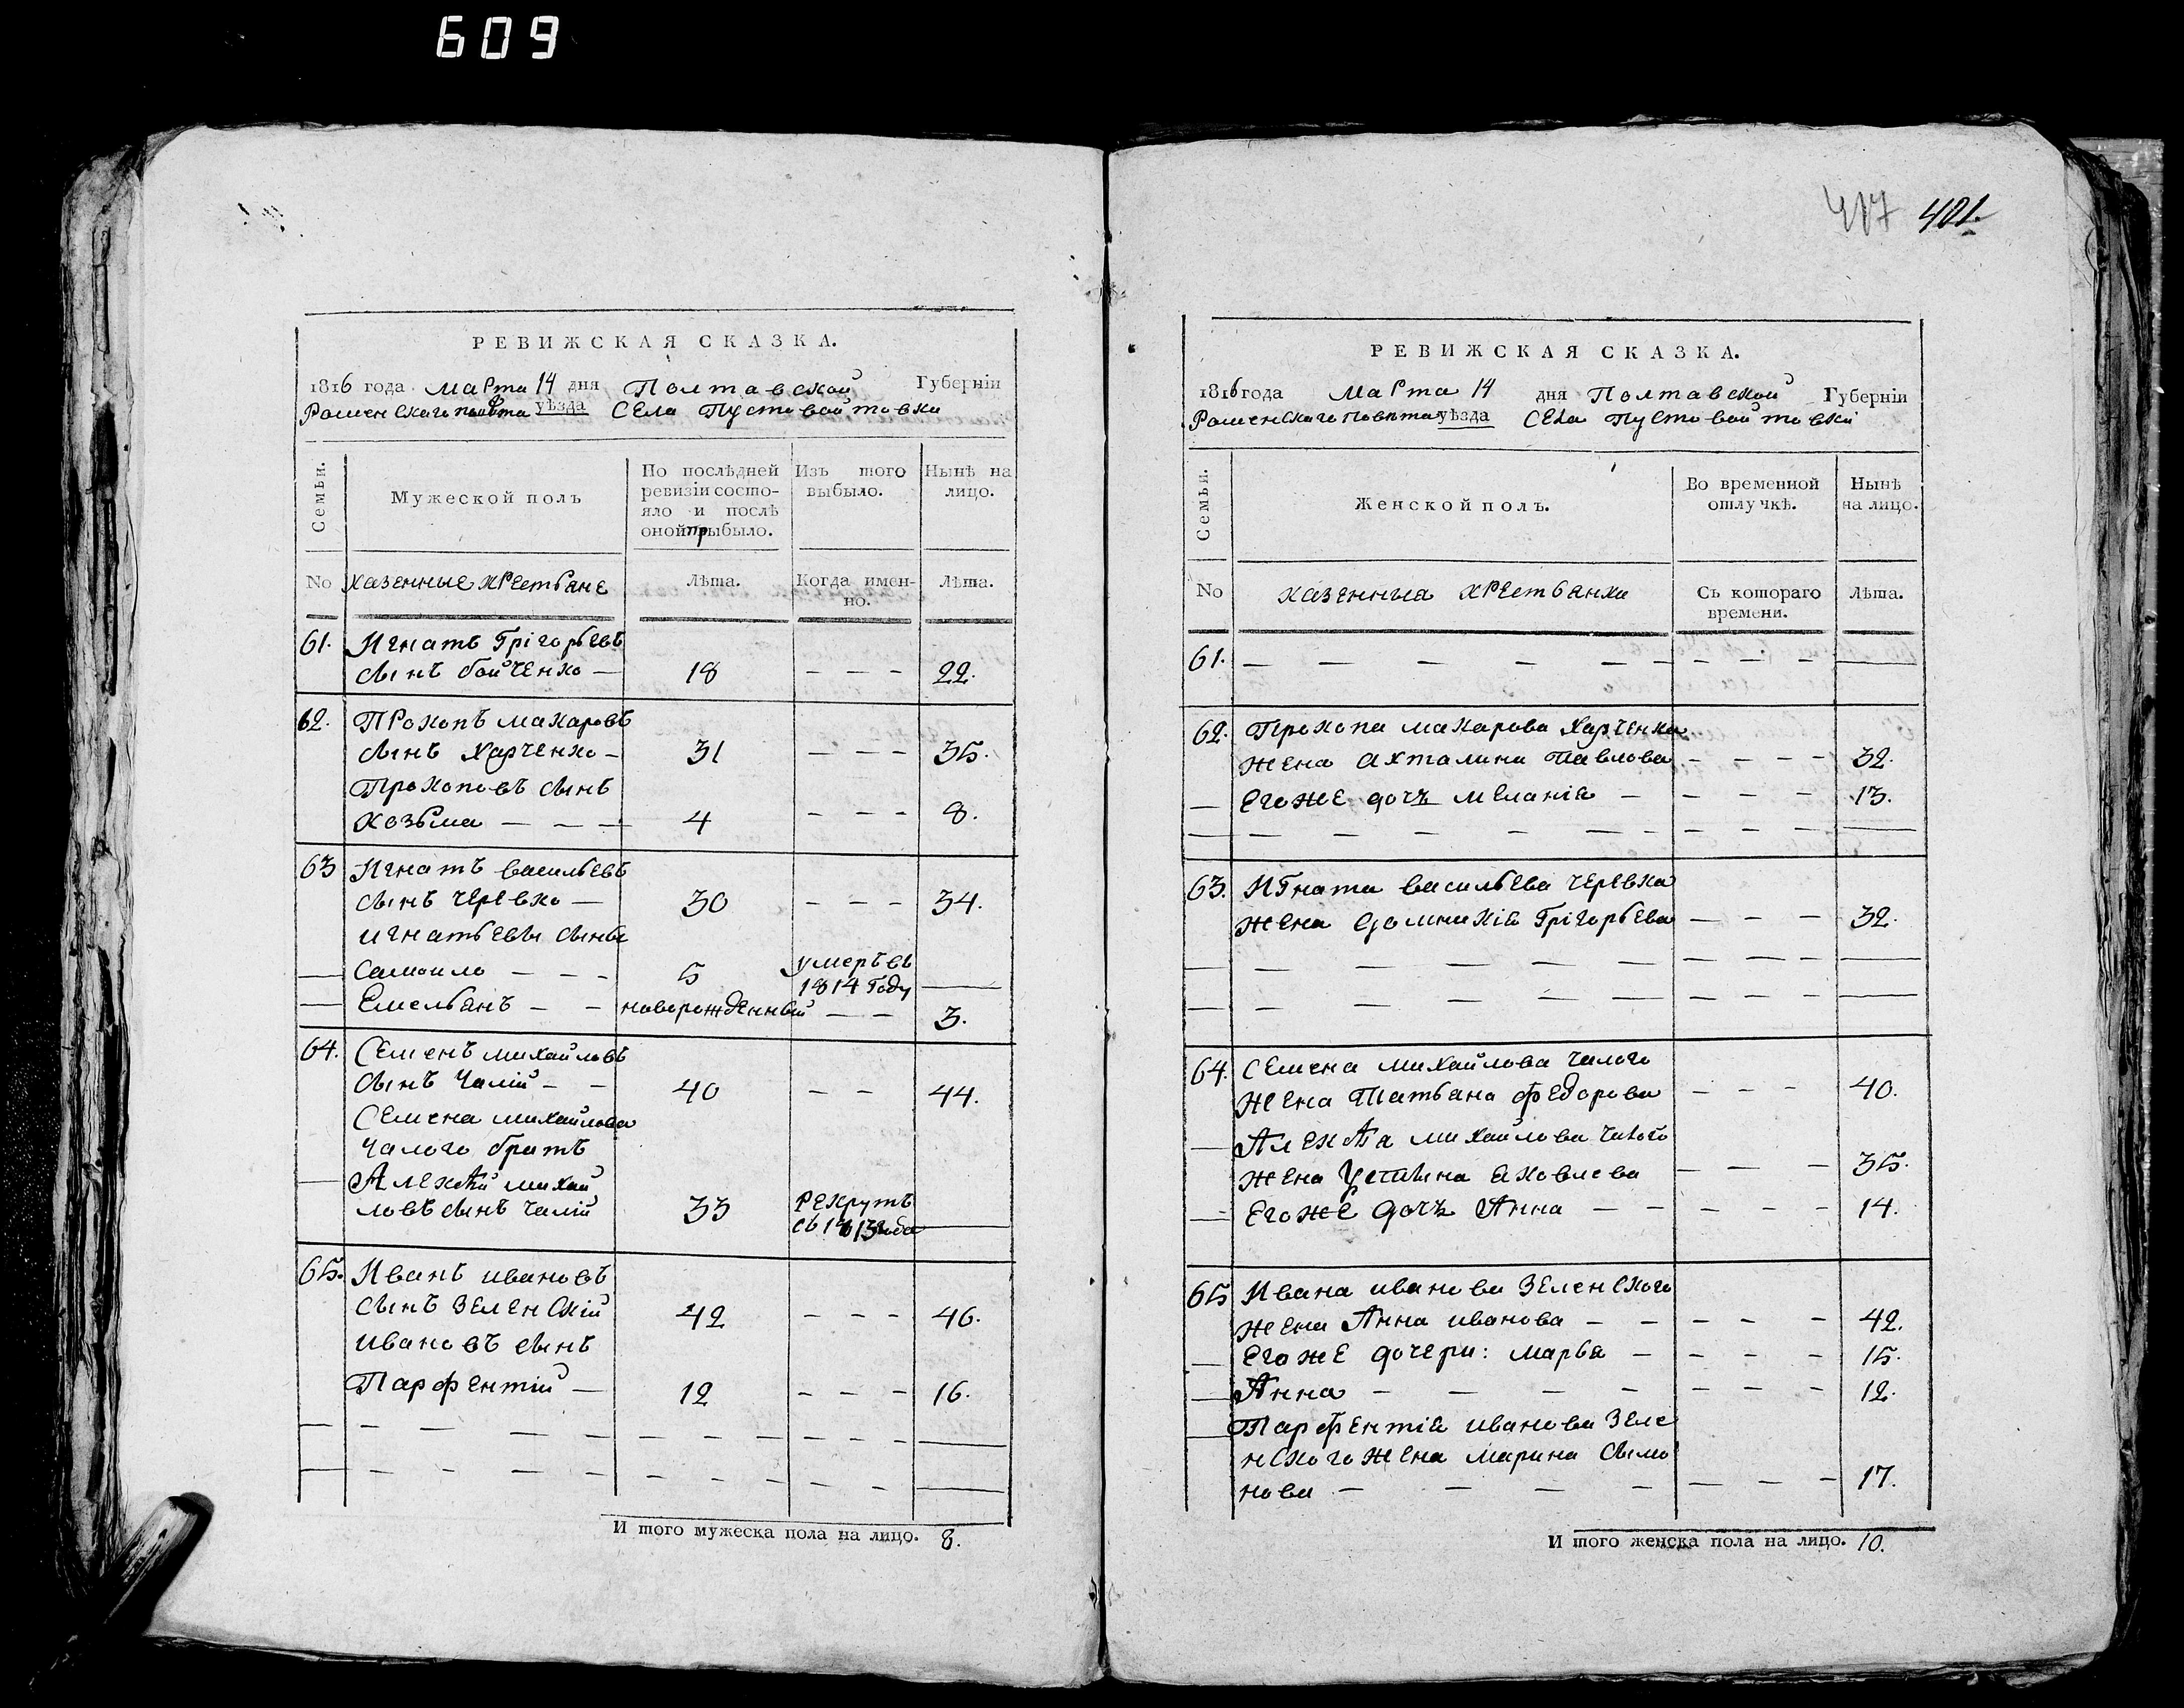 609
417 401.
РЕВИЖСКАЯ СКАЗКА.
1816 года Марта 14 дня Полтавской Губерніи
Роменскаго повѣта уѣзда Села Пустовойтовки
Семьи.
Мужеской полъ
По послѣдней
ревизіи состо-
яло и послѣ
оной прибыло.
Изъ того
выбыло.
Нынѣ на
лицо.
No казенные крестьяне
Лѣта.
Когда имен-
но.
Лѣта.
61. Игнатъ Грігорьевъ
сынъ бойченко — 18 — — — 22.
62. Прокопъ макаровъ
сынъ Харченко — 31 — — — 35.
Прокоповъ сынъ
козьма — — — 4 — — — 8.
63 Игнатъ васильевъ
сынъ черевко — 30 — — — 34.
игнатьевы сыны
— Самоило — — — 5 умеръ въ
1814 Году —
— Емельянъ — — новорожденный — — 3.
64. Семенъ михайловъ
сынъ Чалій — — 40 — — 44.
Семена михайлова
Чалого братъ
— Алексѣй михай
ловъ сынъ чалій 33 рекрутъ
съ 1813 года —
65. Иванъ ивановъ
сынъ зеленскій 42 — — — 46.
ивановъ сынъ
Парфентій — 12 — — — 16.
— — — — — — — — — — — —
— — — — — — — — — — —
И того мужеска пола на лицо. 8.
РЕВИЖСКАЯ СКАЗКА.
1816 года Марта 14 дня Полтавской Губерніи
Роменскаго Повѣта уѣзда Села Пустовойтовки
Семьи.
Женской полъ.
Во временной
отлучкѣ.
Нынѣ
на лицо.
No казенныя крестьянки
Съ котораго
времени.
Лѣта.
61. — — — — — — — — — —
62. Прокопа макарова Харченка
жена Ахталина Павлова — — — — 32.
— Егоже дочъ меланія — — — — 13.
— — — — — — — — — — —
63. Игната васильева черевка
жена Едомникія Грігорьева — — — 32.
— — — — — — — — — —
— — — — — — — — — —
64. Семена михайлова чалого
жена Татьяна федорова — — — 40.
— Алексѣя михайлова чалого
жена Устина яковлева — — — 35.
— Егоже дочъ Анна — — — — — 14.
65 Ивана иванова Зеленского
жена Анна иванова — — — — — 42.
— Егоже дочери: марья — — — — 15.
— Анна — — — — — — — 12.
— Парфентія иванова Зеле
нского жена марина сымо
нова — — — — — — — 17.
И того женска пола на лицо. 10.